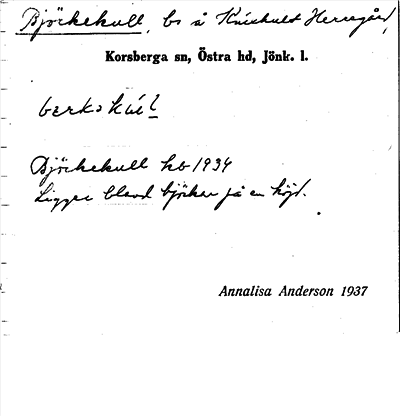 Björkekull, ls å Knixhult Herregård,
Korsberga sn, Östra hd, Jönk. l.
bærkskúl
Björkekull hb 1934
Ligger bland björkar på en höjd.
Annalisa Anderson 1937